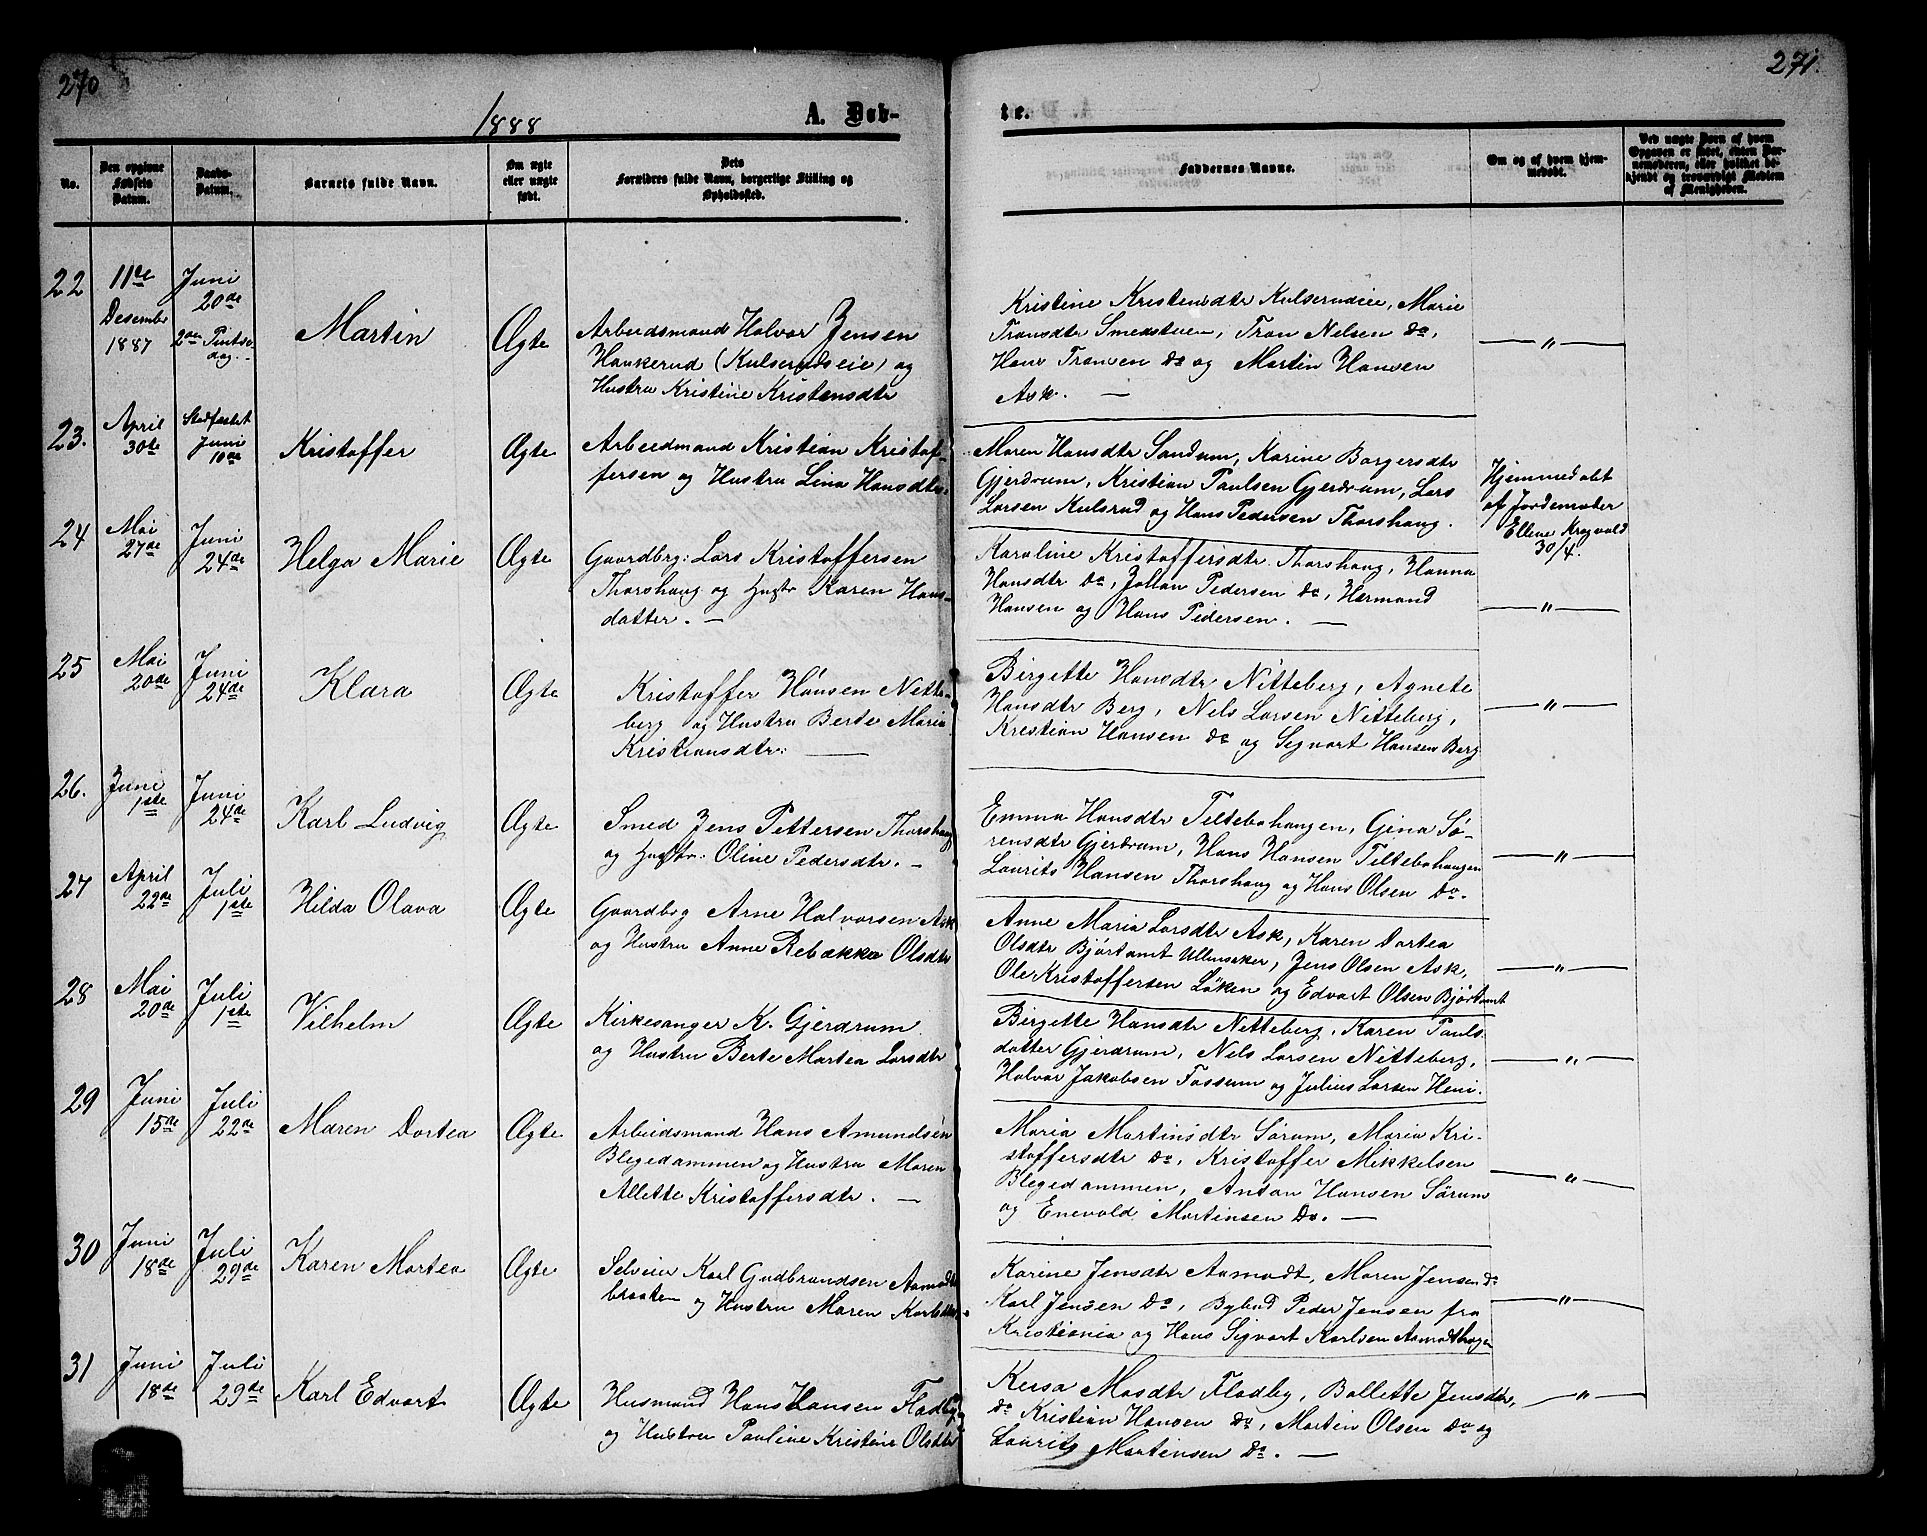 270
271.
1888
A. Døb-
te.
No.
Den opgivne Fødsels Datum.
Daabs-Datum.
Barnets fulde Navn.
Om ægte eller uægte født.
Dets Forældres fulde Navn, borgerlige Stilling og Opholdssted.
Faddernes Navne.
Om og af hvem hjemmedøbt.
22
11te Desember 1887
Juni 20de 2den Pintsedag.
Martin
Ægte
Arbeidsmand Halvor Jensen
Haukerud (Kulserudseie) og
Hustru Kristine Kristensdtr
Kristine Kristensdtr Kulserudeie, Marie
Transdtr Smedstuen, Tron Nelsen do,
Hans Tronsen do og Martin Hansen
Ask. —
— " —
23.
April 30te
Stadfæstet Juni 10de
Kristoffer
Ægte
Arbeidmand Kristian Kristof-
fersen og Hustru Lina Hansdtr.
Maren Hansdtr Sandum, Karine Borgersdtr
Gjerdrum, Kristian Paulsen Gjerdrum, Lars
Larsen Kulsrud og Hans Pedersen Thorshaug.
Hjemmedøbt
af Jordemoder
Ellene Kragvold
30/4.
24
Mai 27de
Juni 24de
Helga Marie
Ægte
Gaardbrg: Lars Kristoffersen
Thorshaug og Hustr Karen Hans-
datter. —
Karoline Kristoffersdtr Thorshaug, Hanna
Hansdtr do, Johan Pedersen do, Hermand
Hansen og Hans Pedersen. —
— " —
25
Mai 20de
Juni 24de
Klara
Ægte
Kristoffer Hansen Nitte-
berg og Hustru Berte Maria
Kristiansdtr: —
Birgette Hansdtr Nitteberg, Agnete
Hansdtr Berg, Nels Larsen Nitteberg,
Kristian Hansen do og Sigvart Hansen Berg
— " —
26.
Juni 1ste
Juni 24de
Karl Ludvig
Ægte
Smed Jens Pettersen Thorshaug
og Hustr: Oline Pedersdtr. —
Emma Hansdtr Tiltebohaugen, Gina Sø-
rensdtr Gjerdrum, Hans Hansen Tiltebohaugen
Laurits Hansen Thorshaug og Hans Olsen Do.
— " —
27
April 22de
Juli 1ste
Hilda Olava
Ægte
Gaardbrg Arne Halvorsen Ask
og Hustru Anne Rebækka Olsdtr
Anne Maria Larsdtr Ask, Karen Dortea
Olsdtr Bjørtomt Ullensaker, Jens Olsen Ask,
Ole Kristoffersen Løken og Edvart Olsen Bjørtomt
— " —
28
Mai 20de
Juli 1ste
Vilhelm
Ægte
Kirkesanger K. Gjerdrum
og Hustru Berte Martea Larsdtr
Birgette Hansdtr Nitteberg, Karen Pauls
datter Gjerdrum, Nels Larsen Nitteberg,
Halvor Jakobsen Fossum og Julius Larsen Heni.
— " —
29
Juni 15de
Juli 22de
Maren Dortea
Ægte
Arbeidsmand Hans Amundsen
Blegedammen og Hustru Maren
Allette Kristoffersdtr. —
Maria Martinsdtr Sørum, Maria Kri-
stoffersdtr do, Kristoffer Mikkelsen
Blegedammen, Anton Hansen Sørum
og Enevold Martinsen Do. —
— " —
30
Juni 18de
Juli 29de
Karen Martea
Ægte
Selveier Karl Gudbrandsen Aamodt
braaten og Hustru Maren Karlsdtr.
Karine Jensdtr Aamodt, Maren Jensen do
Karl Jensen Do, Bybud Peder Jensen fra
Kristiania og Hans Sigvart Karlsen Aamodthagen
— " —
31
Juni 18de
Juli 29de
Karl Edvart
Ægte
Husmand Hans Hansen Fladby
og Hustru Pauline Kristine Olsdtr
Kersa Masdtr Fladby, Ballette Jensdtr,
do Kristian Hansen do, Martin Olsen Do og
Laurits Martinsen Do. —
— " —